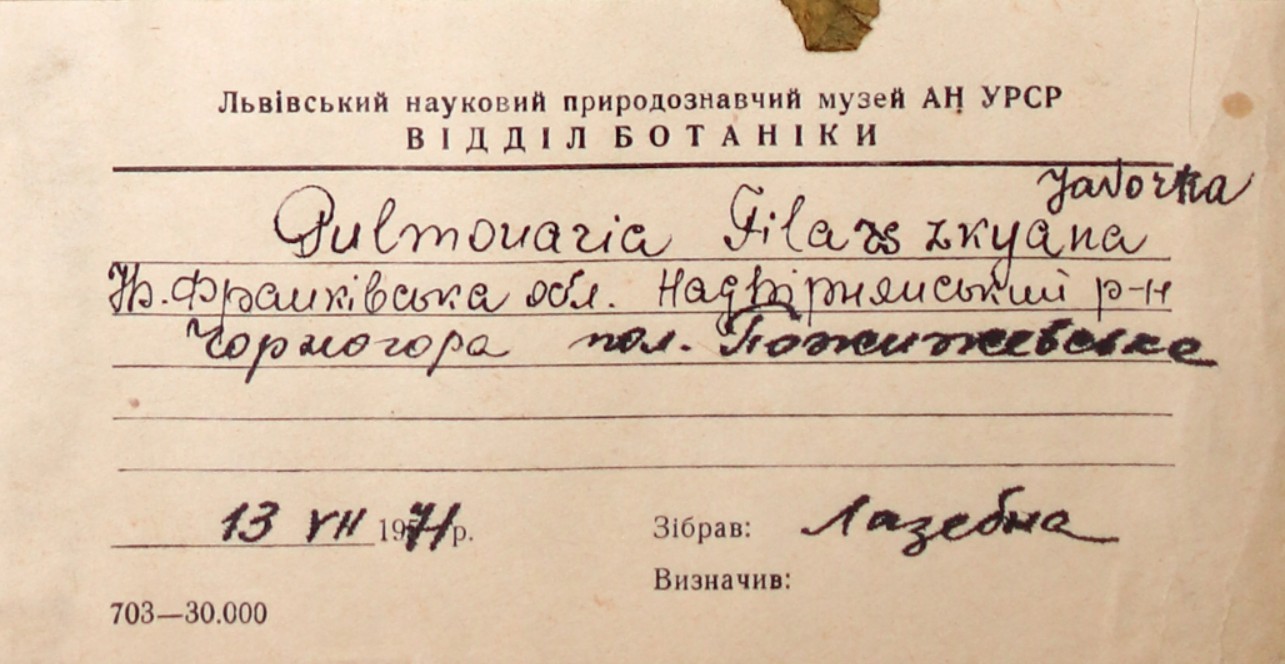 Львівський науковий природознавчий музей АН УРСР
ВІДДІЛ БОТАНІКИ
Javorka
Pulmonaria Filarszkyana
Ів.Франківська обл. Надвірнянський р-н
Чорногора пол. Пожижевське
13 VII 1971р. Зібрав: Лазебна
Визначив:
703—30.000